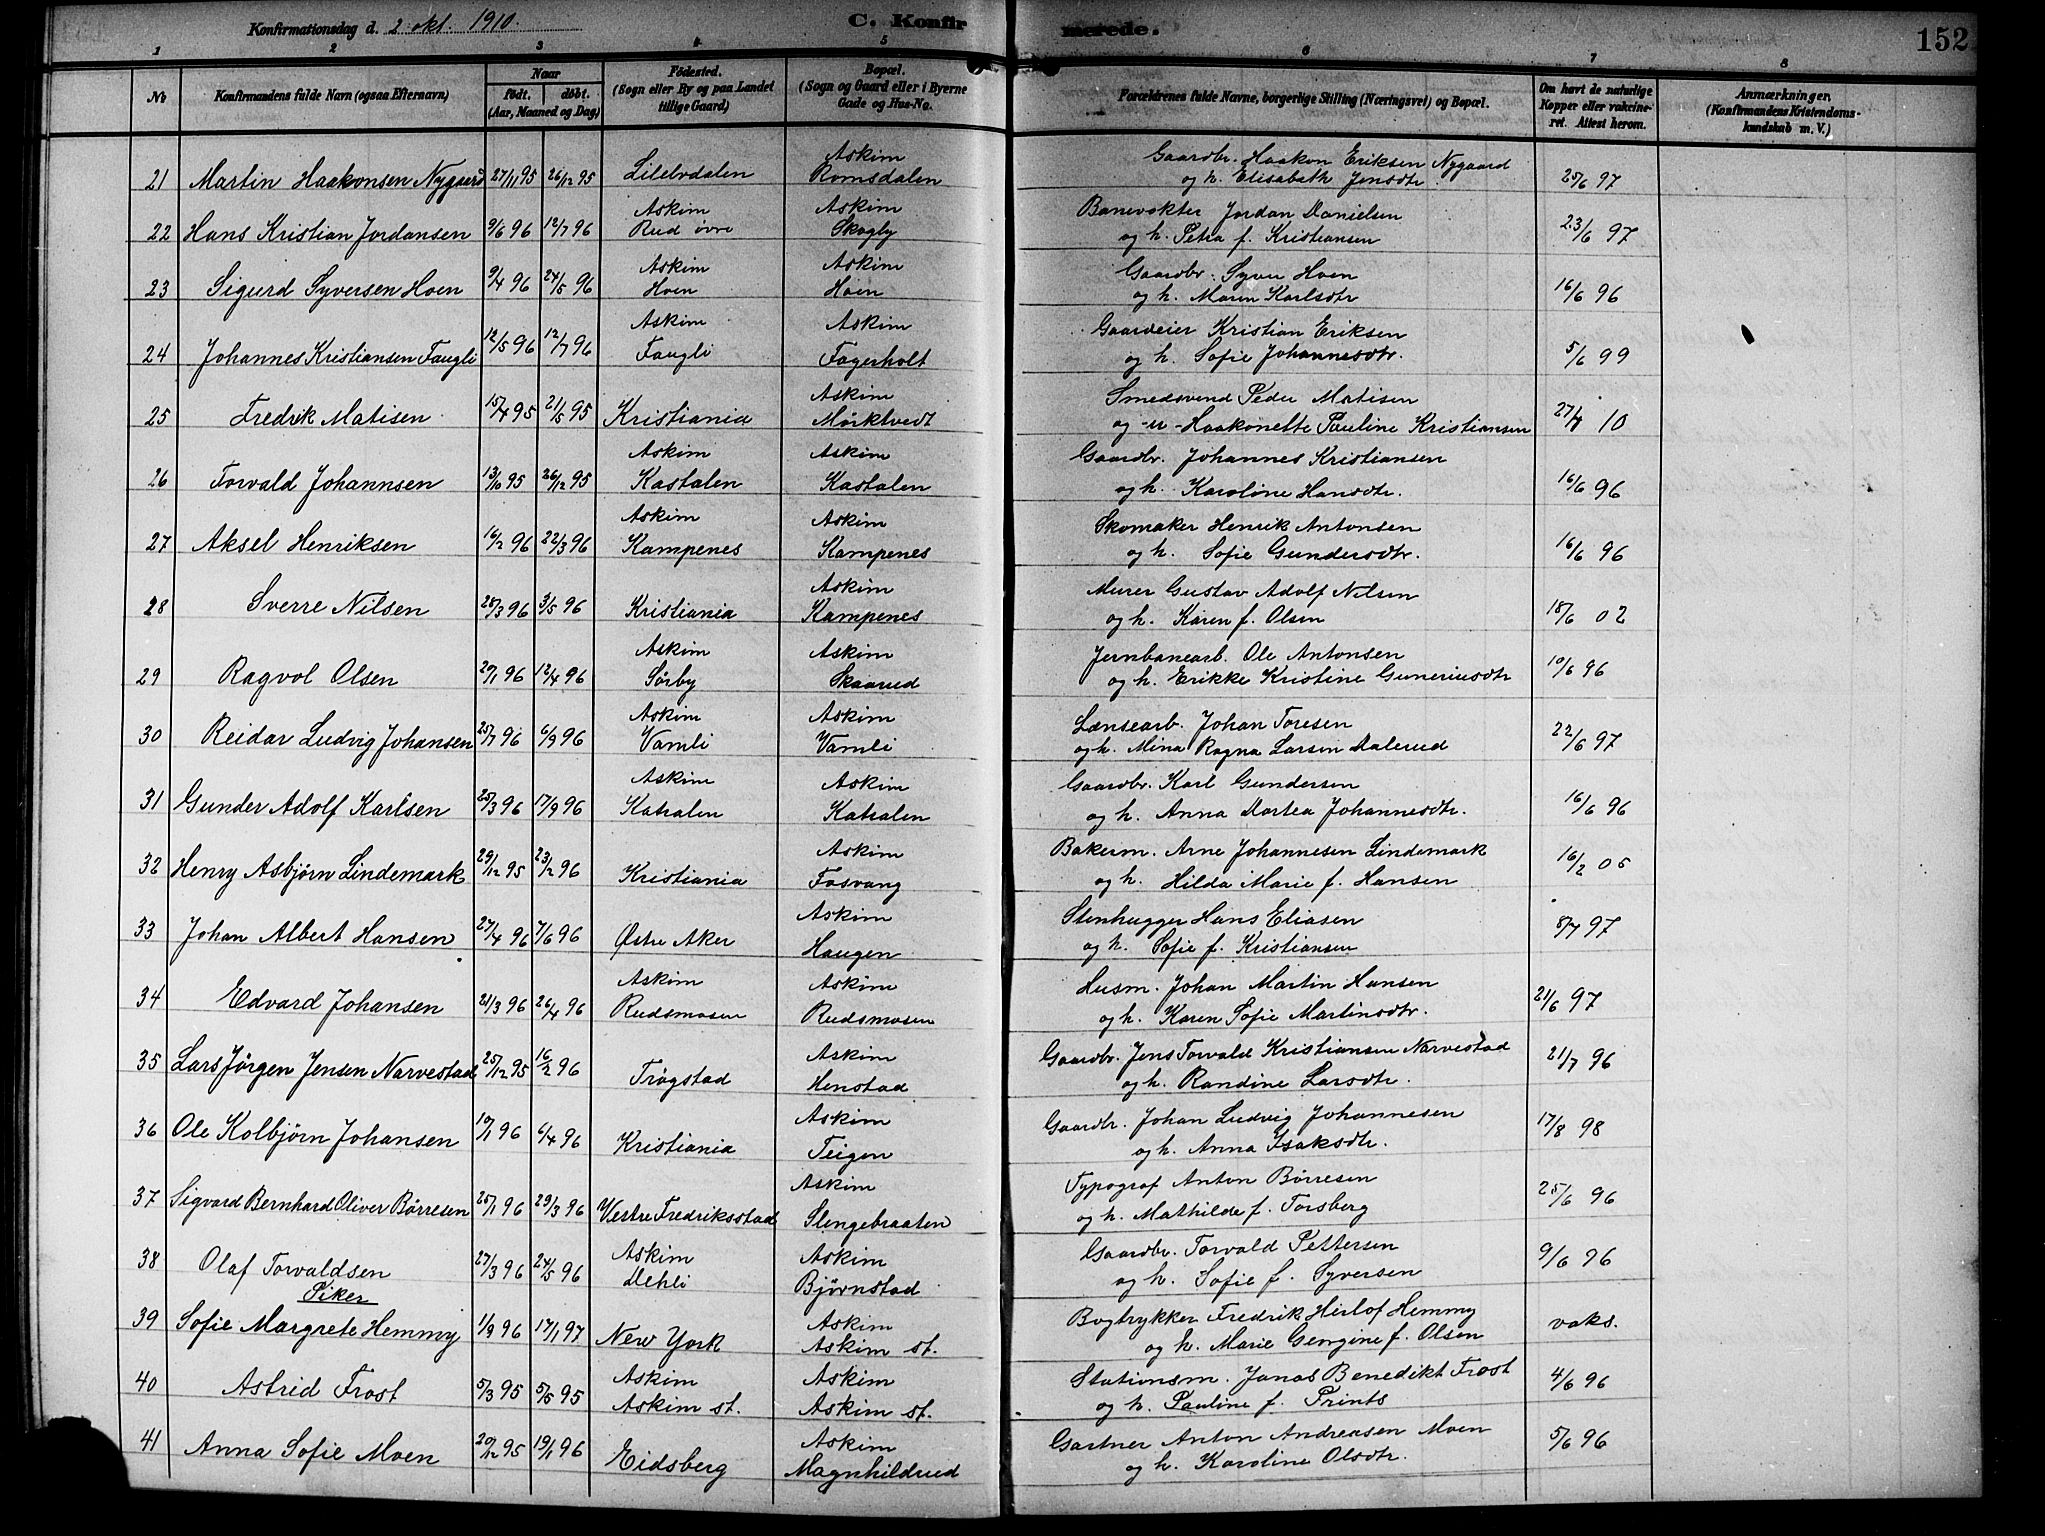 Konfirmationsdag d. 2 okt. 1910.
C. Konfirmerede.
152
1 2 3 4 5 6 7 8
No
Konfirmandens fulde Navn (ogsaa Efternavn)
Naar
født. døbt.
(Aar, Maaned og Dag)
Fødested.
(Sogn eller By og paa Landet
tillige Gaard)
Bopæl.
(Sogn og Gaard eller i Byerne
Gade og Hus-No.
Forældrenes fulde Navne, borgerlige Stilling (Næringsvei) og Bopæl.
Om havt de naturlige
Kopper eller vakcine-
ret. Attest herom.
Anmærkninger.
(Konfirmandens Kristendoms-
kundskab m. V.)
21 Martin Haakonsen Nygaard 27/11 95 26/12 95 Lilebdalen Askim Romsdalen Gaardbr. Haakon Eriksen Nygaard
og h. Elisabeth Jensdtr. 25/6 97
22 Hans Kristian Jordansen 9/6 96 12/7 96 Askim Rud øvre Askim Skogly Banevokter Jordan Danielsen
og h. Petra f. Kristiansen 23/6 97
23 Sigurd Syversen Hoen 9/4 96 24/5 96 Askim Hoen Askim Hoen Gaardbr. Syver Hoen
og h. Maren Karlsdtr 16/6 96
24 Johannes Kristiansen Faugli 12/5 96 12/7 96 Askim Faugli Askim Fagerholt Gaardeier Kristian Eriksen
og h. Sofie Johannesdtr. 5/6 99
25 Fredrik Matisen 15/4 95 21/5 95 Kristiania Askim Mørktvedt Smedsvend Peder Matisen
og -u- Haakonette Pauline Kristiansen 27/4 10
26 Torvald Johannsen 13/10 95 26/12 95 Askim Kastalen Askim Kastalen Gaardbr. Johannes Kristiansen
og h. Karoline Hansdtr. 16/6 96
27 Aksel Henriksen 16/2 96 22/3 96 Askim Kampenes Askim Kampenes Skomaker Henrik Antonsen
og h. Sofie Gundersdtr. 16/6 96
28 Sverre Nilsen 28/3 96 3/5 96 Kristiania Askim Kampenes Murer Gustav Adolf Nilsen
og h. Karen f. Olsen 18/6 02
29 Ragvol Olsen 20/1 96 12/4 96 Askim Sørby Askim Skaarud Jernbanearb. Ole Antonsen
og h. Erikke Kristine Guneriusdtr 10/6 96
30 Reidar Ludvig Johansen 25/7 96 6/9 96 Askim Vamli Askim Vamli Lænsearb. Johan Toresen
og h. Mina Ragna Larsen Dalerud 22/6 97
31 Gunder Adolf Karlsen 25/3 96 17/9 96 Askim Katralen Askim Katralen Gaardbr. Karl Gundersen
og h. Anna Dortea Johannesdtr. 16/6 96
32 Henry Asbjørn Lindemark 29/12 95 23/2 96 Kristiania Askim Fosvang Bakerm. Arne Johannesen Lindemark
og h. Hilda Marie f. Hansen 16/2 05
33 Johan Albert Hansen 27/4 96 7/6 96 Østre Aker Askim Haugen Stenhugger Hans Eliasen
og h. Sofie f. Kristiansen 8/7 97
34 Edvard Johansen 21/3 96 26/4 96 Askim Rudsmosen Askim Rudsmosen Husm. Johan Martin Hansen
og h. Karen Sofie Martinsdtr. 21/6 97
35 Lars Jørgen Jensen Narvestad 25/12 95 16/2 96 Trøgstad Askim Henstad Gaardbr. Jens Torvald Kristiansen Narvestad
og h. Randine Larsdtr. 21/7 96
36 Ole Kolbjørn Johansen 10/1 96 6/4 96 Kristiania Askim Teigen Gaardbr. Johan Ludvig Johannesen
og h. Anna Isaksdtr. 17/8 98
37 Sigvard Bernhard Oliver Børresen 25/1 96 29/3 96 Vestre Fredriksstad Askim Slengebraaten Typograf Anton Børresen
og h. Mathilde f. Torsberg 25/6 96
38 Olaf Torvaldsen 27/3 96 24/5 96 Askim Dehli Askim Bjørnstad Gaardbr. Torvald Pettersen
og h. Sofie f. Syversen 9/6 96
Piker
39 Sofie Margrete Hemmy 1/9 96 17/1 97 New York Askim Askim st. Bogtrykker Fredrik Herlof Hemmy
og h. Marie Georgine f. Olsen vaks.
40 Astrid Frost 5/3 95 5/5 95 Askim Askim st. Askim Askim st. Stationsm. Jonas Benedikt Frost
og h. Pauline f. Prints 4/6 96
41 Anna Sofie Moen 20/12 95 19/1 96 Eidsberg Askim Magnhildrud Gartner Anton Andreasen Moen
og h. Karoline Olsdtr. 5/6 96